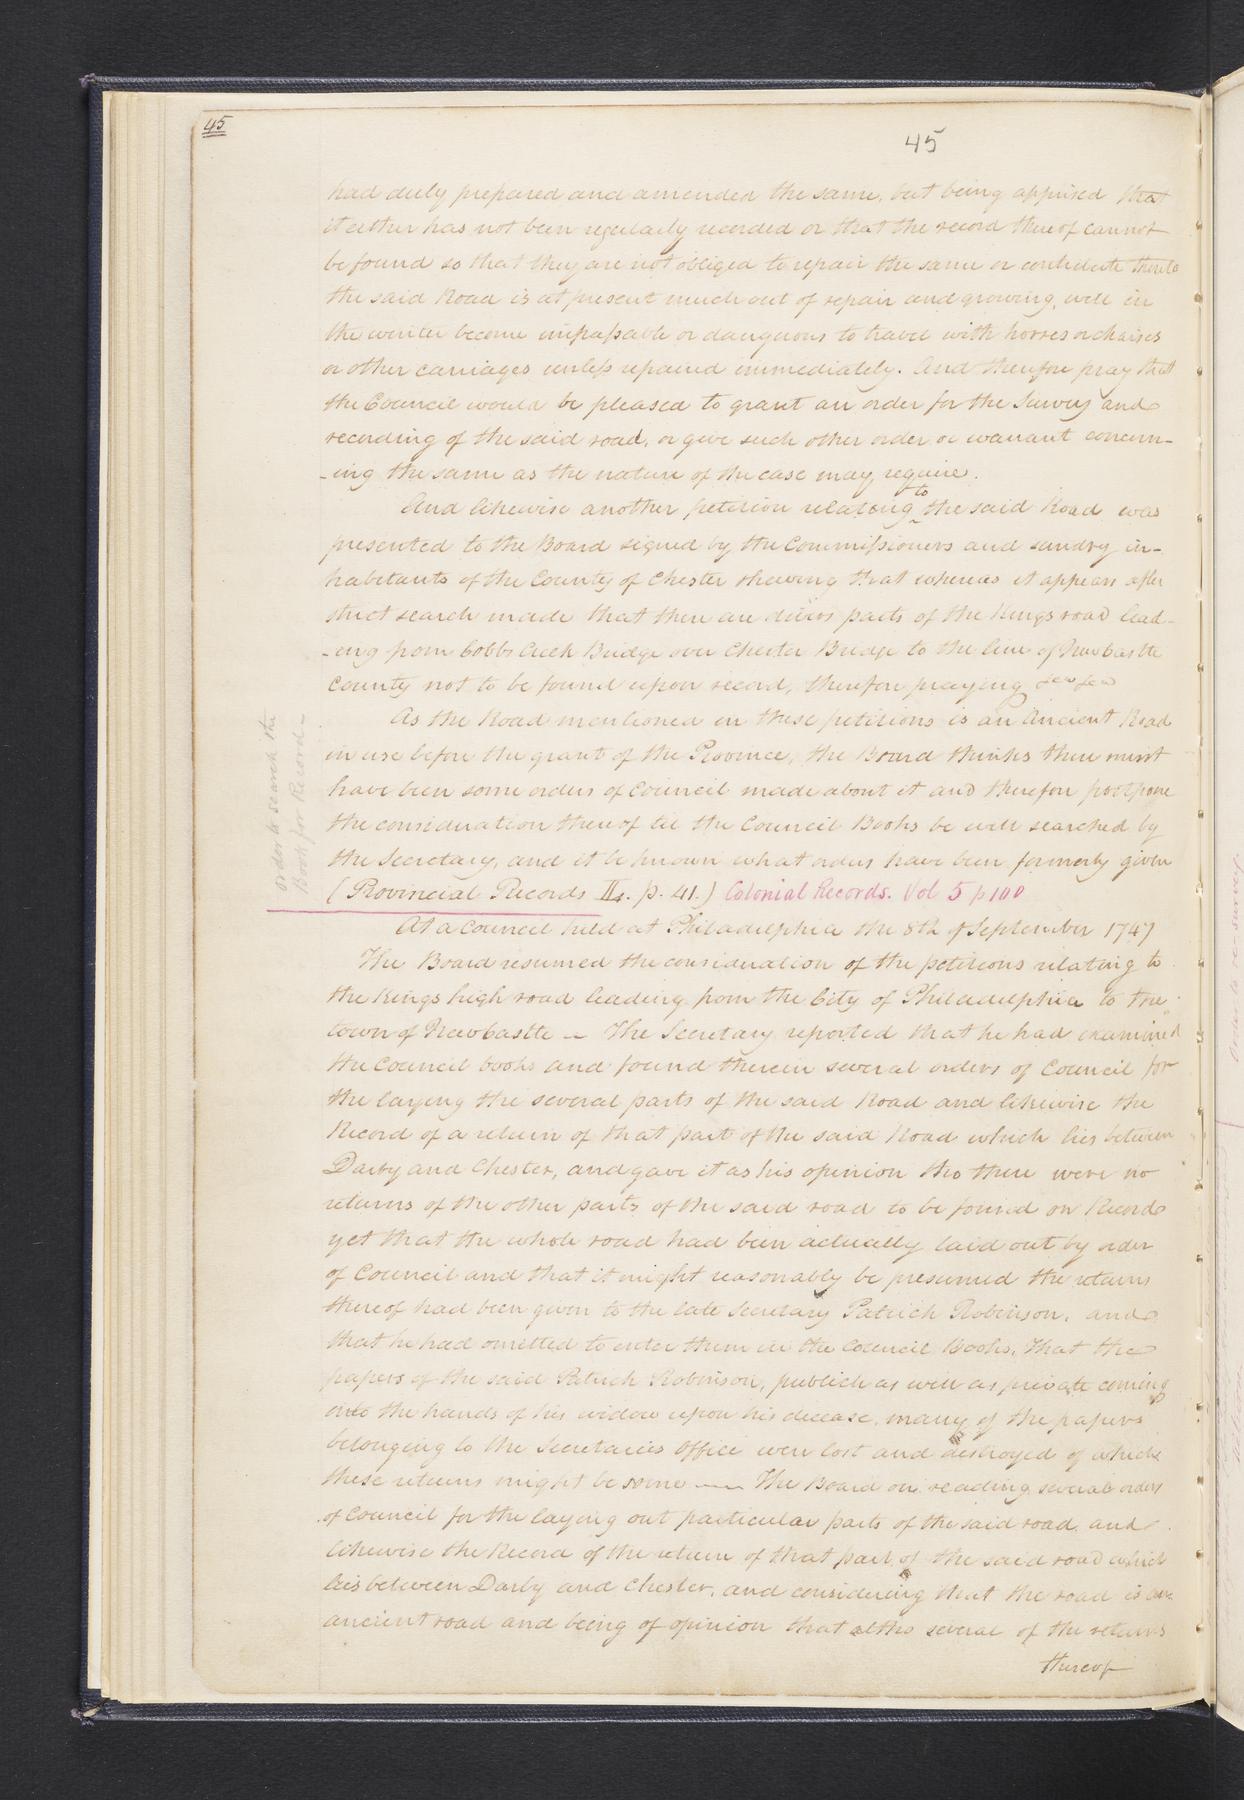 45
45
had duly prepared and amended the same, but being apprised that
it either has not been regularly recorded or that the record thereof cannot
be found so that they are not obliged to repair the same or contribute thereto
the said Road is at present much out of repair and growing, will in
the winter become impassable or dangerous to travel with horses or chaises
or other carriages unless repaired immediately. And therefore pray that
the Council would be pleased to grant an order for the Survey and
recording of the said road, or give such other order or warrant concern-
-ing the same as the nature of the case may require.
And likewise another petition relating to the said Road was
presented to the Board signed by the Commissioners and sundry in-
habitants of the County of Chester shewing that whereas it appears after
strict search made that there are divers parts of the Kings road lead-
-ing from Cobbs Creek Bridge over Chester Bridge to the line of NewCastle
County not to be found upon record, therefore praying
As the Road mentioned in these petitions is an Ancient Road
in use before the grant of the Province, the Board thinks there must
have been some orders of Council made about it and therefore postpone
the consideration thereof til the Council Books be well searched by
the Secretary, and it be known what orders have been formerly given
order to search the
Book for Record-
(Provincial Records II. p. 41.) Colonial Records. Vol 5 p 100
At a Council held at Philadelphia the 8th of September 1747
The Board resumed the consideration of the petitions relating to
the Kings high road leading from the City of Philadelphia to the
town of NewCastle - The Secretary reported that he had examined
the Council books and found therein several orders of Council for
the laying the several parts of the said Road and likewise the
Record of a return of that part of the said Road which lies between
Darby and Chester, and gave it as his opinion tho there were no
returns of the other parts of the said road to be found on Record
yet that the whole road had been actually laid out by order
of Council and that it might reasonably be presumed the returns
thereof had been given to the late Secretary Patrick Robinson, and
that he had omitted to enter them in the Council Books, That the
papers of the said Patrick Robinson, publick as well as private coming
into the hands of his widow upon his decease, many of the papers
belonging to the Secretaries Office were lost and destroyed of which
these returns might be some — The Board on reading several orders
of Council for the laying out particular parts of the said road and
likewise the Record of the return of that part of the said road which
lies between Darby and Chester, and considering that the road is an
ancient road and being of opinion that altho several of the returns
thereof